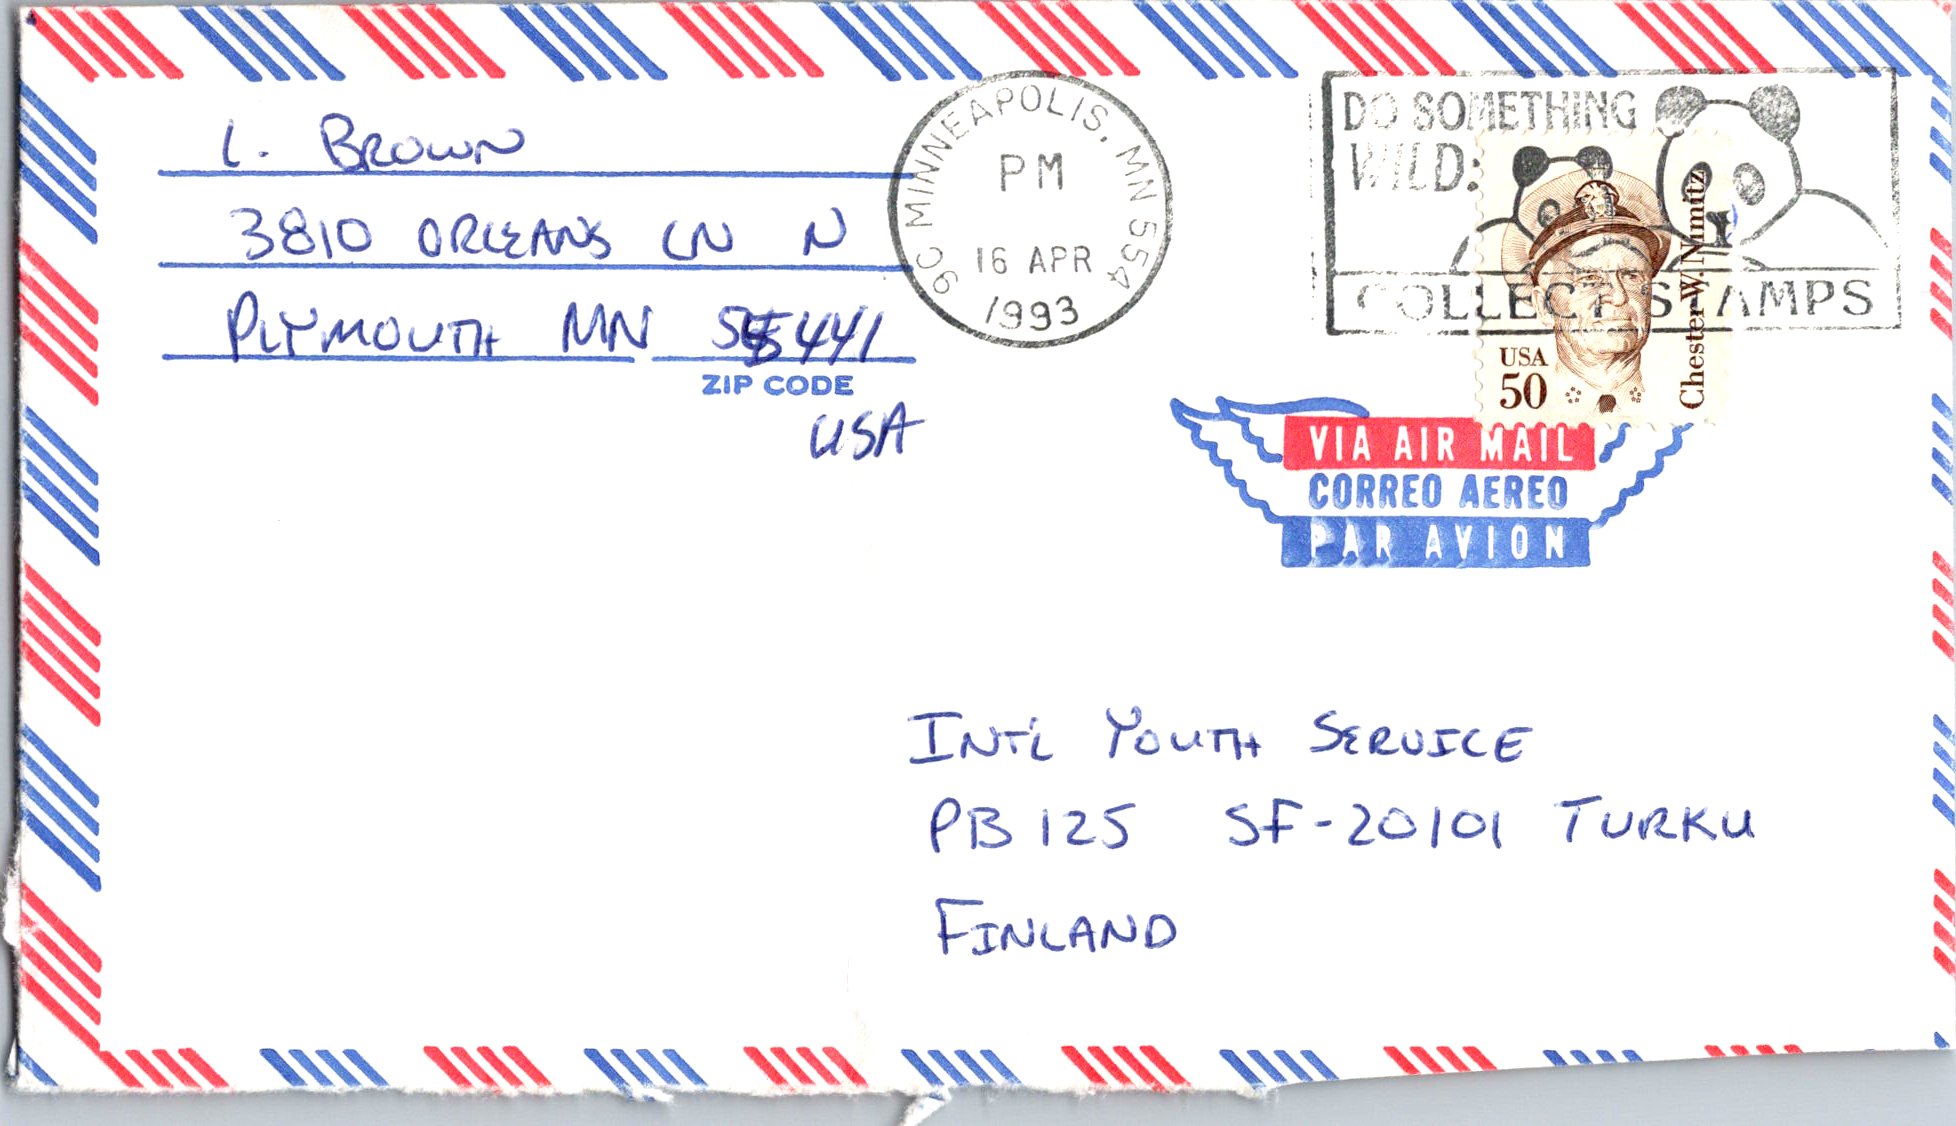 L. BROWN
3810 ORLEANS LN N
PLYMOUTH MN 55441
ZIP CODE
USA
9C MINNEAPOLIS, MN 554
PM
16 APR
1993
DO SOMETHING
WILD:
COLLECT STAMPS
USA
50
Chester W. Nimitz
VIA AIR MAIL
CORREO AEREO
PAR AVION
INT'L YOUTH SERVICE
PB 125 SF-20101 TURKU
FINLAND